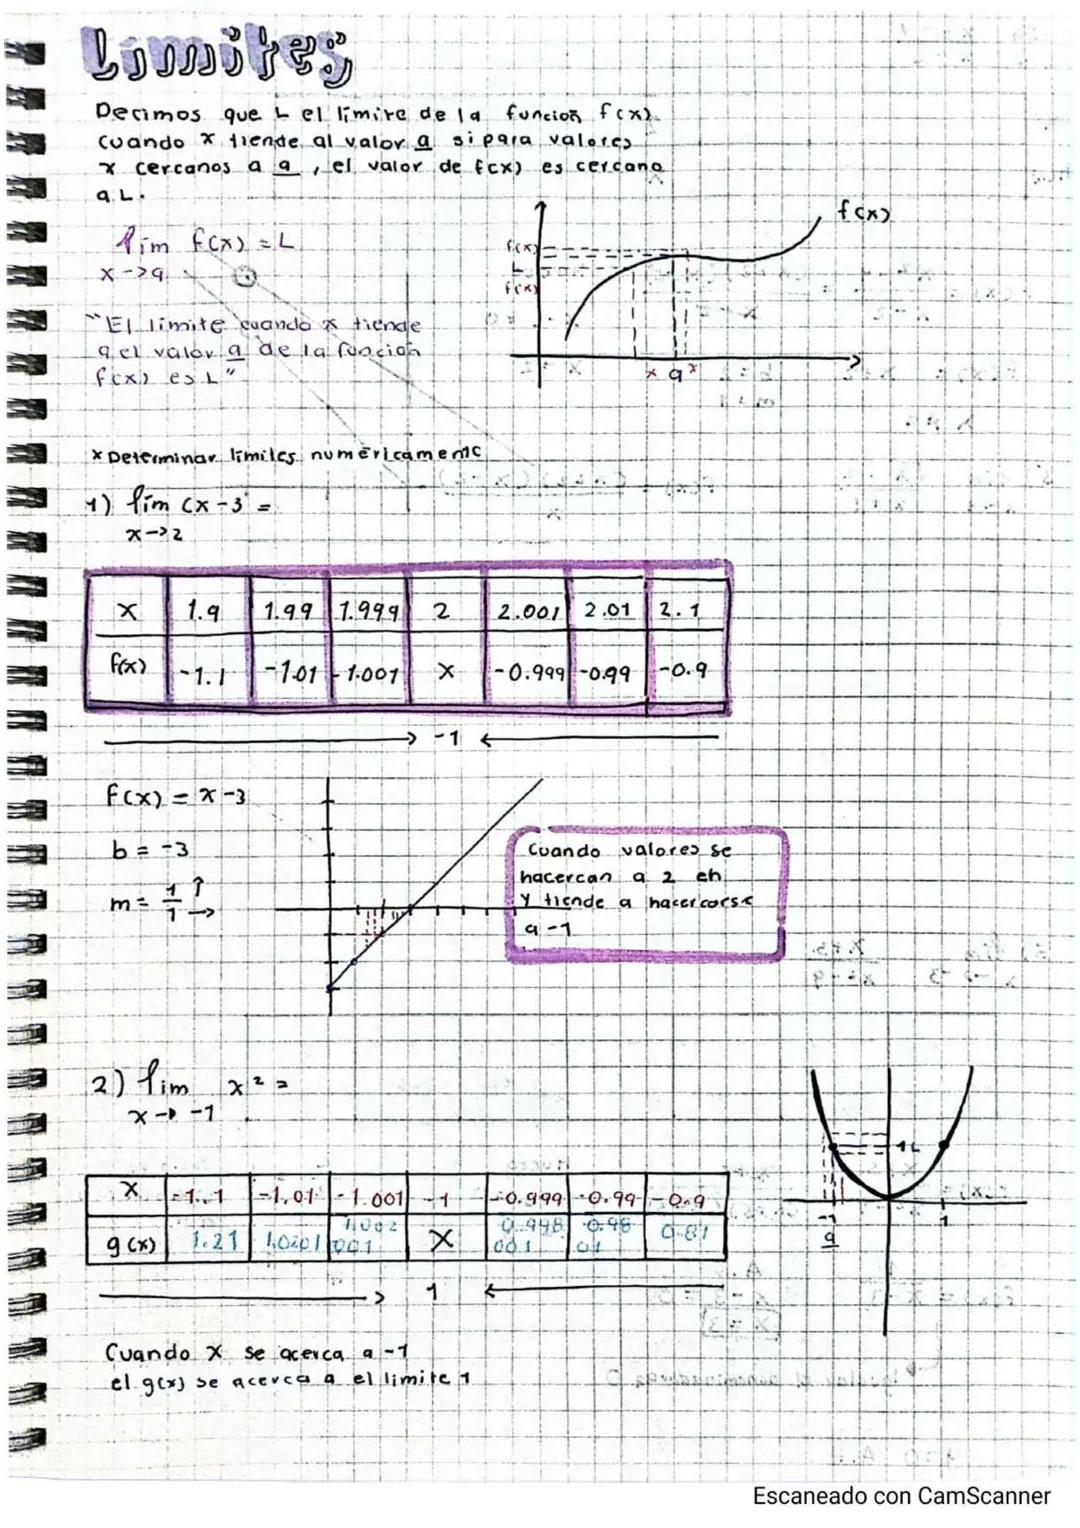 Límites
Decimos que L el límite de la función f(x)
cuando x tiende al valor a si para valores
x cercanos a a , el valor de f(x) es cercano
a L.
lím f(x) = L
x->a
"El límite cuando x tiende
a el valor a de la función
f(x) es L"
f(x)
f(x)
L
f(x)
x a x
x Determinar límites numéricamente
1) lím (x-3 =
x->2
x 1.9 1.99 1.999 2 2.001 2.01 2.1
f(x) -1.1 -1.01 -1.001 x -0.999 -0.99 -0.9
-> -1 <-
f(x) = x-3
b = -3
m = 1/1 ↑ →
Cuando valores se
hacercan a 2 en
y tiende a hacercarse
a -1
2) lím x² =
x-> -1
x -1.1 -1.01 -1.001 -1 -0.999 -0.99 -0.9
g(x) 1.21 1.0201 1.002001 X 0.998001 0.9801 0.81
-> 1 <-
1 L
-1 1
a
Cuando x se acerca a -1
el g(x) se acerca a el limite 1
Escaneado con CamScanner